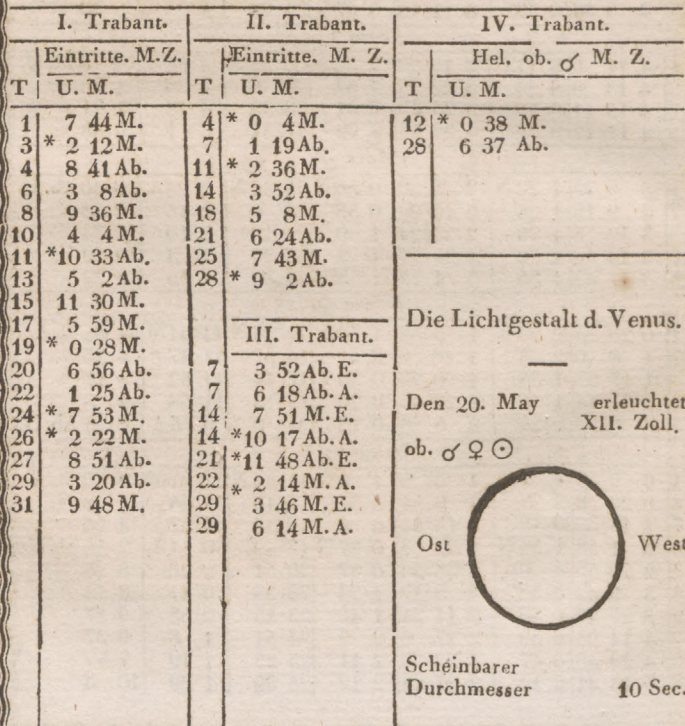 I. Trabant.
Eintritte. M.Z.
T U. M.
1 7 44 M.
3 * 2 12 M.
4 8 41 Ab.
6 3 8 Ab.
8 9 36 M.
10 4 4 M.
11 *10 33 Ab.
13 5 2 Ab.
15 11 30 M.
17 5 59 M.
19 * 0 28 M.
20 6 56 Ab.
22 1 25 Ab.
24 * 7 53 M.
26 * 2 22 M.
27 8 51 Ab.
29 3 20 Ab.
31 9 48 M.
II. Trabant.
Eintritte. M. Z.
T U. M.
4 * 0 4 M.
7 1 19 Ab.
11 * 2 36 M.
14 3 52 Ab.
18 5 8 M.
21 6 24 Ab.
25 7 43 M.
28 * 9 2 Ab.
III. Trabant.
7 3 52 Ab. E.
7 6 18 Ab. A.
14 7 51 M. E.
14 *10 17 Ab. A.
21 *11 48 Ab. E.
22 * 2 14 M. A.
29 3 46 M. E.
29 6 14 M. A.
IV. Trabant.
Hel. ob. ☌ M. Z.
T U. M.
12 * 0 38 M.
28 6 37 Ab.
Die Lichtgestalt d. Venus.
Den 20. May erleuchtet
XII. Zoll.
ob. ☌ ♀ ☉
Ost West
Scheinbarer
Durchmesser 10 Sec.